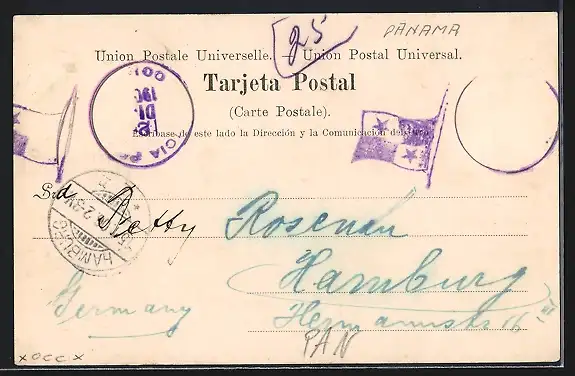 25 PANAMA
Union Postale Universelle. Union Postal Universal.
Tarjeta Postal
(Carte Postale).
Escribase de este lado la Dirección y la Comunicación del
COL
190
DI
CIA PA
HAMBURG
Betty Rosenau
Hamburg
Germany
Hermannstr 16 III
PAN
xOCCx